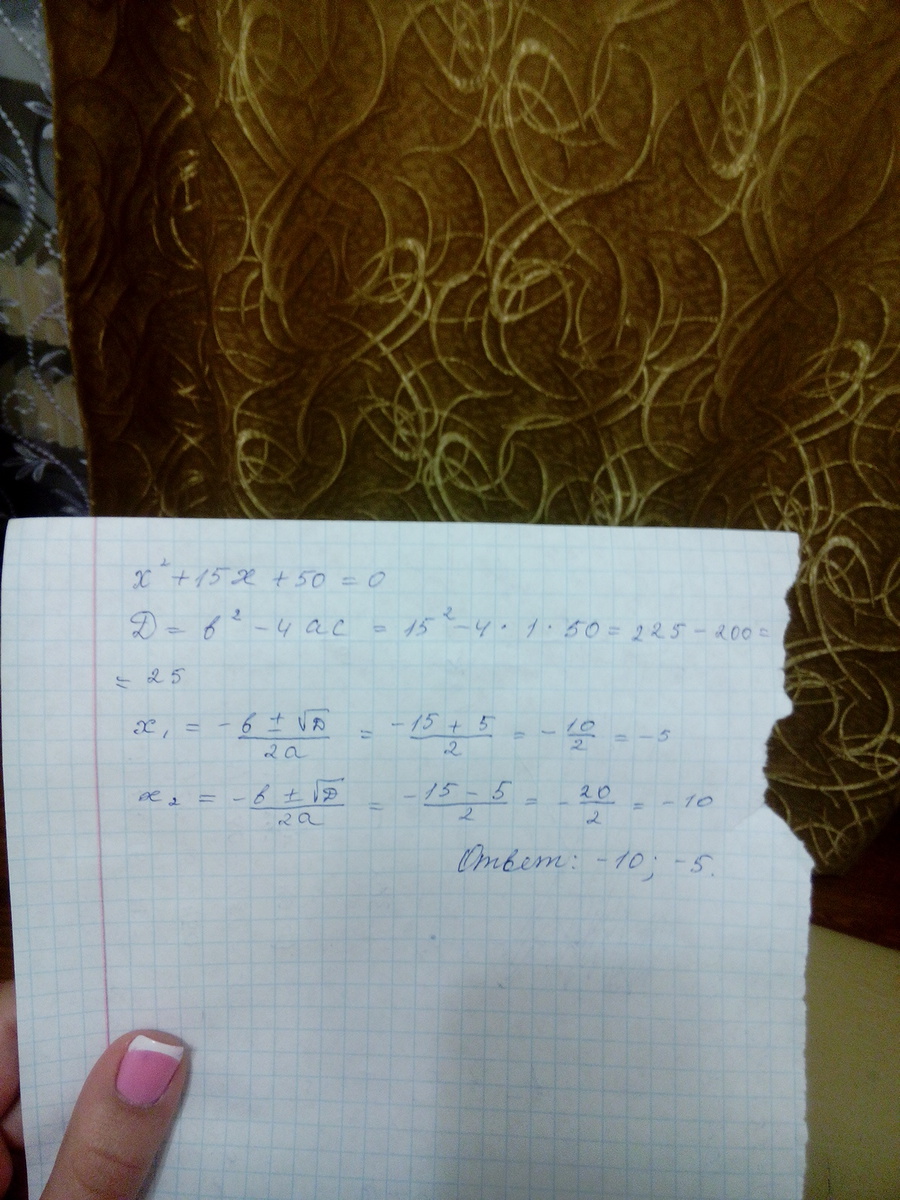 x² + 15x + 50 = 0
D = b² - 4ac = 15² - 4 · 1 · 50 = 225 - 200 =
= 25
x₁ = -b ± √D / 2a = -15 + 5 / 2 = -10/2 = -5
x₂ = -b ± √D / 2a = -15 - 5 / 2 = -20/2 = -10
Ответ: -10; -5.